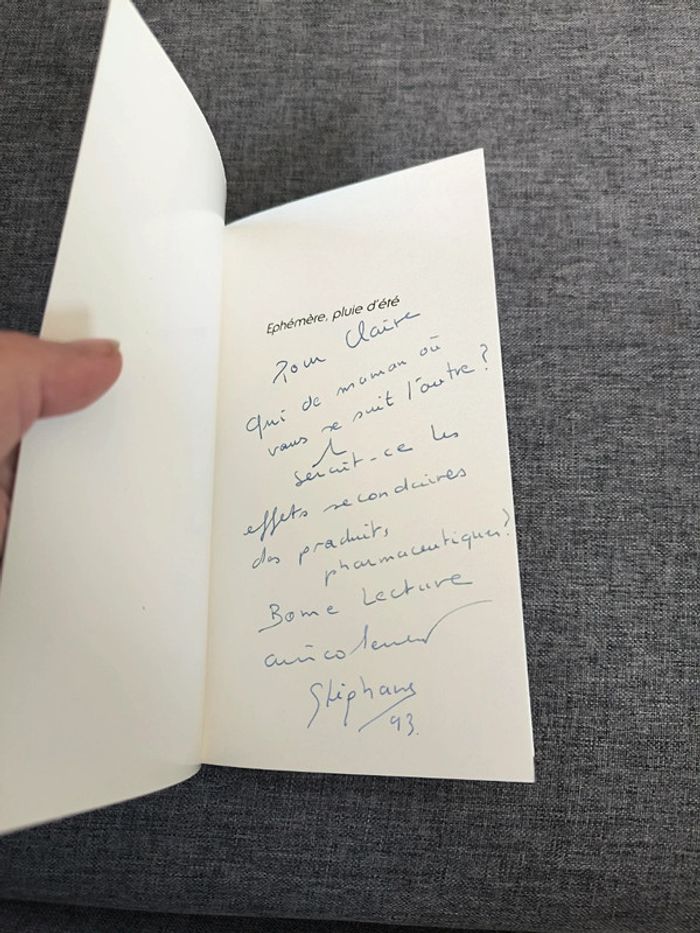 Ephémère, pluie d'été
Pour Claire
Qui de maman où
vous se suit l'autre ?
serait-ce les
effets secondaires
des produits
pharmaceutiques ?
Bonne Lecture
amicalement
Stéphane
93.